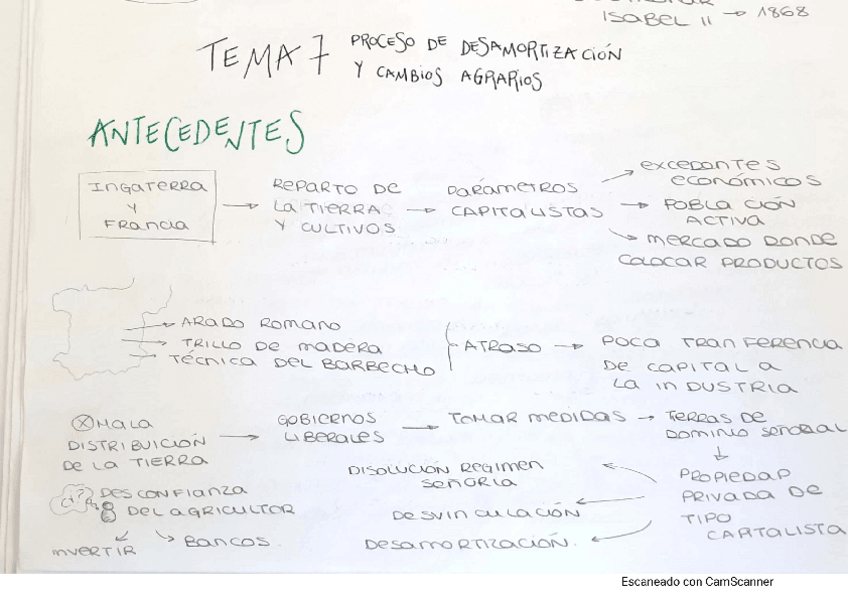 ISABEL II → 1868
TEMA 7 PROCESO DE DESAMORTIZACIÓN
Y CAMBIOS AGRARIOS
ANTECEDENTES
INGATERRA
Y
FRANCIA
→ REPARTO DE
LA TIERRA
Y CULTIVOS
→ PARÁMETROS
CAPITALISTAS
→ EXCEDANTES
ECONÓMICOS
→ POBLACIÓN
ACTIVA
→ MERCADO DONDE
COLOCAR PRODUCTOS
→ ARADO ROMANO
→ TRILLO DE MADERA
→ TÉCNICA DEL BARBECHO
ATRASO → POCA TRANFERENCIA
DE CAPITAL A
LA INDUSTRIA
MALA
DISTRIBUCIÓN
DE LA TIERRA
→ GOBIERNOS
LIBERALES
→ TOMAR MEDIDAS → TERRAS DE
DOMINIO SEÑORIAL
↓
PROPIEDAD
PRIVADA DE
TIPO
CAPITALISTA
DISOLUCIÓN REGIMEN
SEÑORIA
DESVINCULACIÓN
DESAMORTIZACIÓN.
DESCONFIANZA
DEL AGRICULTOR
INVERTIR
BANCOS.
Escaneado con CamScanner